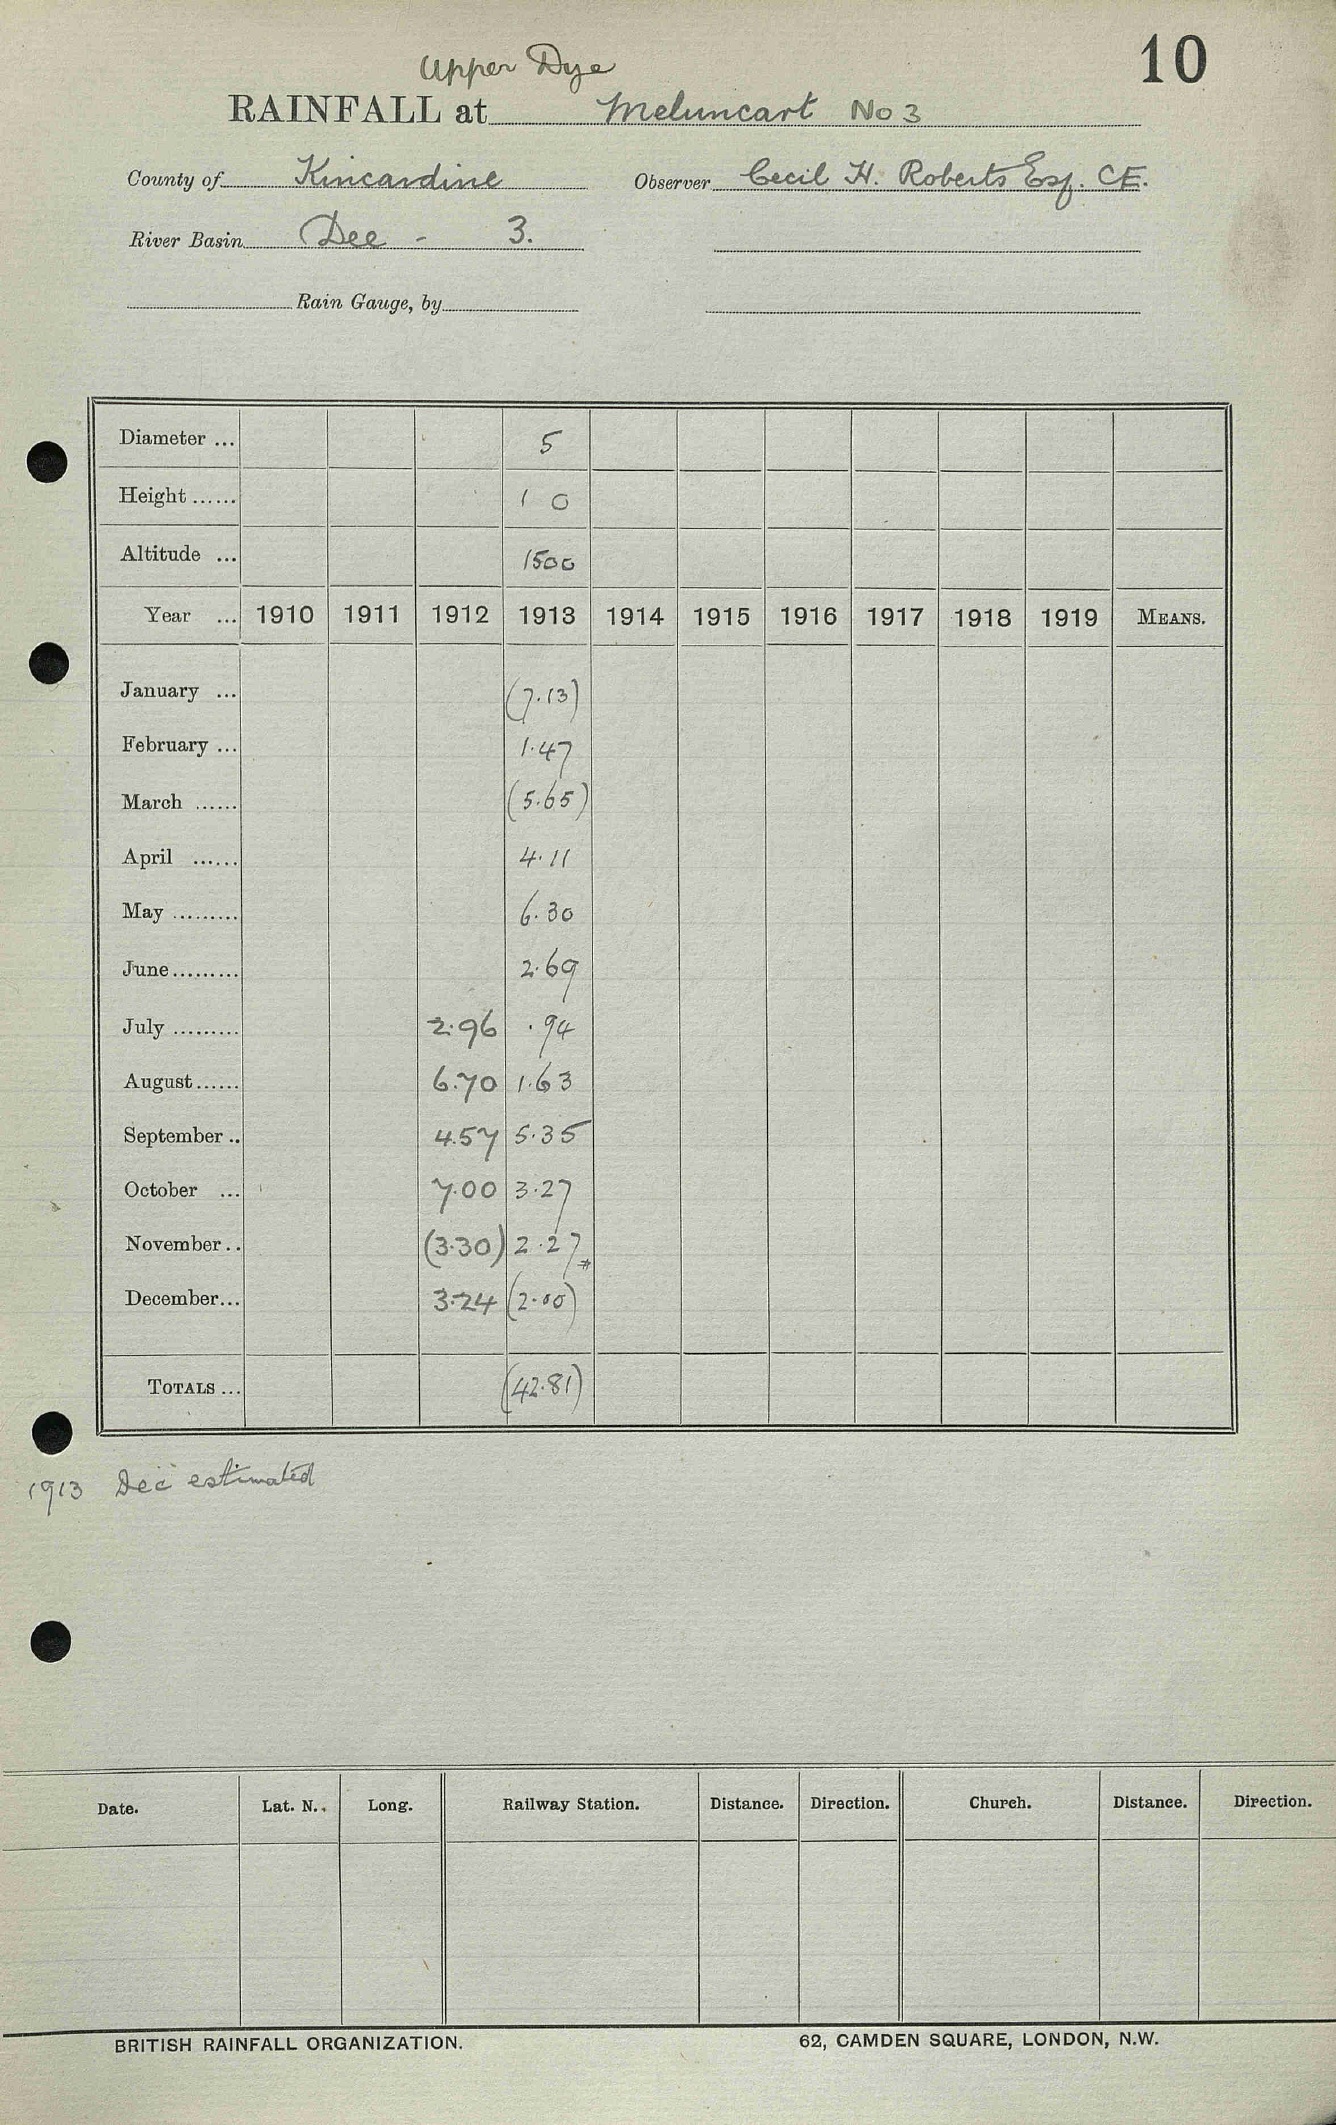 10
Upper Dye
RAINFALL at Meluncart No 3
County of Kincardine Observer Cecil H. Roberts Esq. C.E.
River Basin Dee - 3.
Rain Gauge, by
Diameter ... 5
Height ...... 1 0
Altitude ... 1500
Year ... 1910 1911 1912 1913 1914 1915 1916 1917 1918 1919 MEANS.
January ... (7.13)
February ... 1.47
March ...... (5.65)
April ...... 4.11
May ......... 6.30
June ......... 2.69
July ......... 2.96 .94
August ...... 6.70 1.63
September .. 4.57 5.35
October ... 7.00 3.27
November .. (3.30) 2.27 *
December ... 3.24 (2.00)
TOTALS ... (42.81)
1913 Dec estimated
Date. Lat. N. Long. Railway Station. Distance. Direction. Church. Distance. Direction.
BRITISH RAINFALL ORGANIZATION. 62, CAMDEN SQUARE, LONDON, N.W.